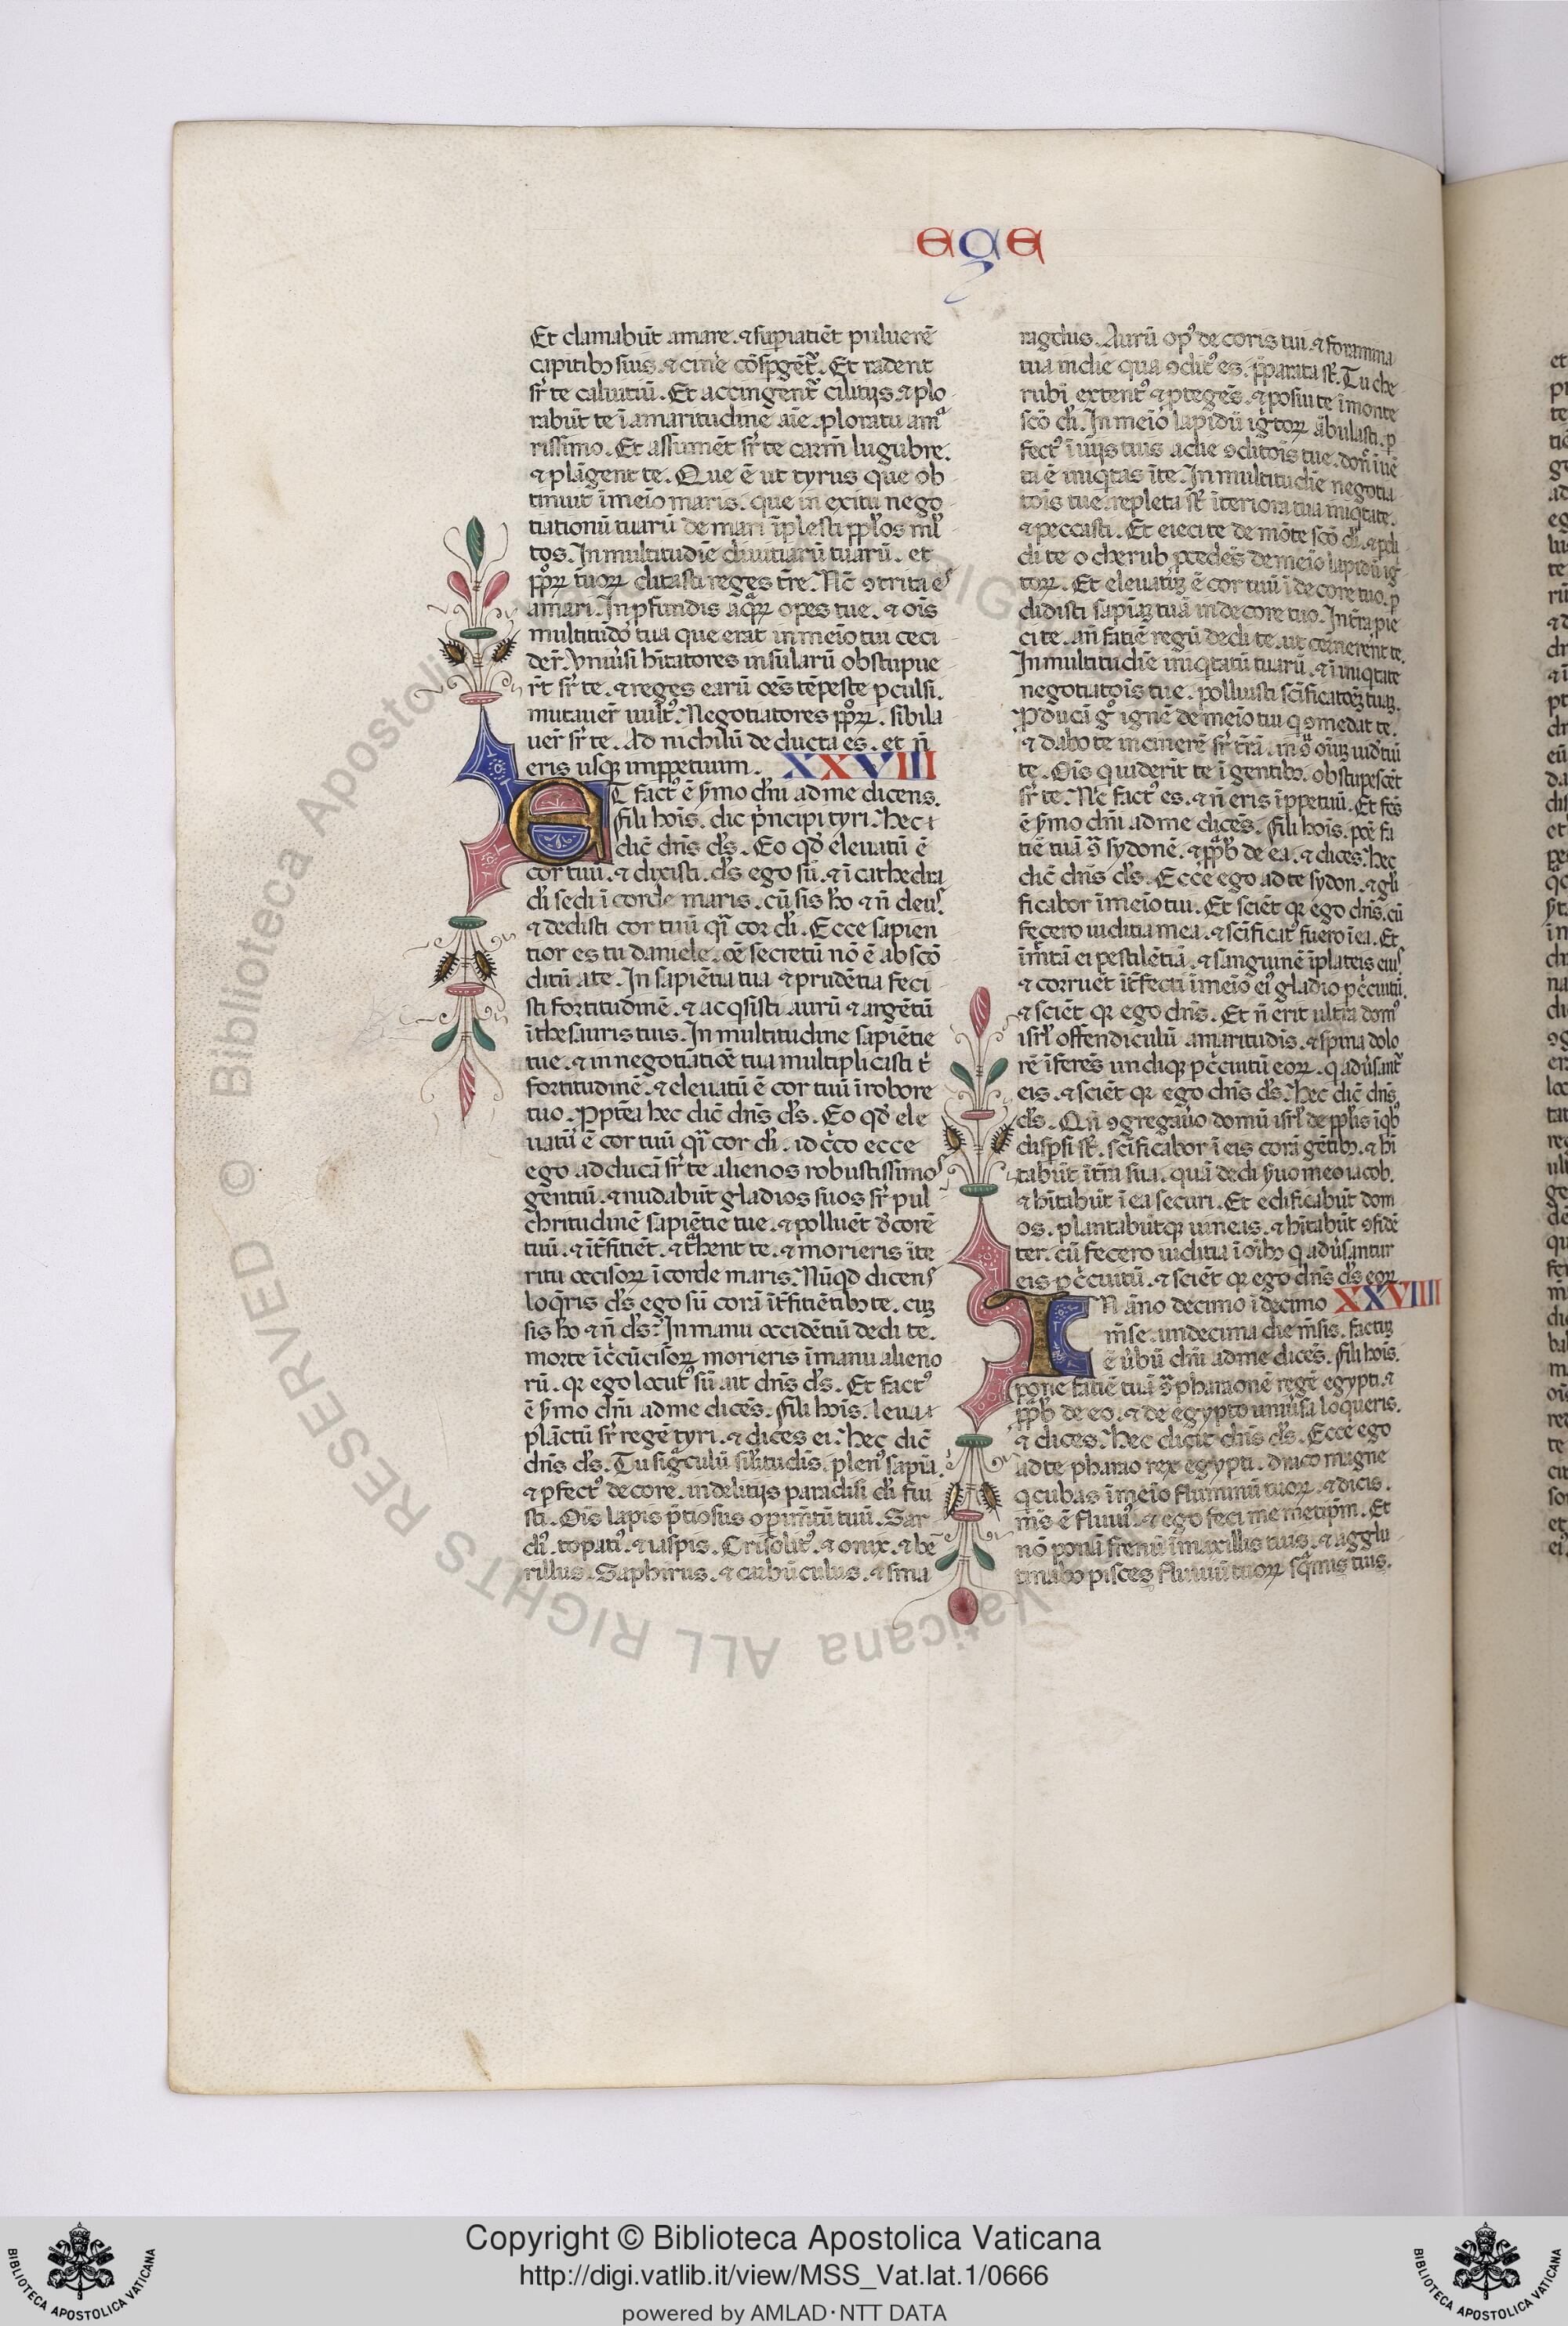 EZE
Et clamabūt amare. ⁊ sup̄iatiēt puluerē
capitibꝫ suis. ⁊ cinē cōsꝑgēt᷑. Et radent
sr̄ te caluitiū. Et accingent᷑ cilitijs. ⁊ plo
rabūt te ī amaritudine aīe. ploratu amᵃ
rissimo. Et assumēt sr̄ te carm̄ lugubre.
⁊ plāgent te. Que ē ut tyrus que ob
tinuit ī meīo maris. que in exitu nego
tiationū tuarū de mari īplesti pp̄los ml̄
tos. In multitudīe diuitiarū tuarū. et
pp̄oꝝ tuoꝝ ditasti reges tr̄e. Nc̄ ꝯtrita eˢ
amari. In ꝓfundis aq̄ꝝ opes tue. ⁊ oīs
multitudo tua que erat in meīo tui ceci
der̄. Vniūsi hītatores insularū obstupue
rt̄ sr̄ te. ⁊ reges earū oēs tēpeste ꝑculsi.
mutauer̄ uult᷒. Negotiatores pp̄oꝝ. sibila
uer̄ sr̄ te. Ad nichilū deducta es. et n̄
eris usqꝫ imppetuum. XXVIII
ET fact᷒ ē ẜmo dn̄i ad me dicens.
Fili hoīs. dic p̄ncipi tyri. Hec ⁊
dic̄ dn̄s ds̄. Eo qd̄ eleuatū ē
cor tuū. ⁊ dixisti. ds̄ ego sū. ⁊ ī cathedra
dī sedi ī corde maris. cū sis hō ⁊ n̄ deuˢ.
⁊ dedisti cor tuū qͣı cor dī. Ecce sapien
tior es tu daniele. oē secretū nō ē abscō
ditū a te. In sapiētia tua ⁊ prudētia feci
sti fortitudinē. ⁊ acq̄sisti aurū ⁊ argētū
ī thesauris tuis. In multitudine sapiētie
tue. ⁊ in negotiatiōe tua multiplicasti t̄
fortitudinē. ⁊ eleuatū ē cor tuū ī robore
tuo. Ꝓpt̄ea hec dic̄ dn̄s ds̄. Eo qd̄ ele
uatū ē cor tuū qͣı cor dī. idc̄co ecce
ego adducā sr̄ te alienos robustissimoˢ
gentiū. ⁊ nudabūt gladios suos sr̄ pul
chritudinē sapiētie tue. ⁊ polluēt decorē
tuū. ⁊ īt̄fitiēt. ⁊ tͣhent te. ⁊ morieris īte
ritu occisoꝝ ī corde maris. Nūqd̄ dicenˢ
loq̄ris ds̄ ego sū corā īt̄fitiētibꝫ te. cuꝫ
sis hō ⁊ n̄ ds̄? In manu occidētiū dedi te.
morte īc̄cūcisoꝝ morieris ī manu alieno
rū. qꝛ ego locut᷒ sū ait dn̄s ds̄. Et fact᷒
ē ẜmo dn̄i ad me dicēs. Fili hoīs. leua ⁊
plāctū sr̄ regē tyri. ⁊ dices ei. Hec dic̄
dn̄s ds̄. Tu siḡculū sil̄itudīs. plen᷒ sapīa.
⁊ ꝑfect᷒ decore. in delitijs paradisi dī fui
sti. Oīs lapis p̄tiosus oꝑim̄tū tuū. Sar
di᷒. topati᷒. ⁊ iaspis. Crisolit᷒. ⁊ onix. ⁊ be
rillus. Saphirus. ⁊ carbūculus. ⁊ sma
ragdus. Aurū op᷒ decoris tui. ⁊ foramina
tua in die qua ꝯdit᷒ es. p̄parata st̄. Tu che
rubī extent᷒ ⁊ ꝓtegēs. ⁊ posui te ī monte
scō dī. In meīo lapidū ig̅toꝝ ābulasti. ꝑ
fect᷒ ī uijs tuis a die ꝯditōis tue. don̄ īuē
ta ē iniq̄tas īte. In multitudīe negotia
tōis tue. repleta st̄ īteriora tua iniq̄tate.
⁊ peccasti. Et eieci te de mōte scō dī. ⁊ ꝑdi
di te o cherub ꝓtegēs de meīo lapidū ig̅
toꝝ. Et eleuatuꝫ ē cor tuū ī decore tuo. ꝑ
didisti sapīaꝫ tuā in decore tuo. In tr̄a ꝓie
ci te. an̄ fatiē regū dedi te. ut cernerēnt te.
In multitudīe iniq̄tatū tuarū. ⁊ ī iniq̄tate
negotiatōis tue. polluisti scīficatōeꝫ tuaꝫ.
Ꝓducā gͦ ignē de meīo tui q̄ ꝯmedat te.
⁊ dabo te in cinerē sr̄ tr̄ā. in ꝯspectu oīuꝫ uid̄tiū
te. Oīs q̄ uiderīt te ī gentibꝫ. obstupescēt
sr̄ te. Nīc fact᷒ es. ⁊ n̄ eris īppetuū. Et fc̄s
ē ẜmo dn̄i ad me dicēs. Fili hoīs. poē fa
tiē tuā ꝯ sydonē. ⁊ ꝓpħ de ea. ⁊ dices. Hec
dic̄ dn̄s ds̄. Ecce ego ad te sydon. ⁊ gl̄i
ficabor ī meīo tui. Et sciēt qꝛ ego dn̄s. cū
fecero iuditia mea. ⁊ scīficat᷒ fuero ī ea. Et
īmittā ei pestilētiā. ⁊ sanguinē īplateis eiuˢ
⁊ corruēt īt̄fecti ī meīo ei᷒ gladio ꝑc̄cuitū.
⁊ sciēt qꝛ ego dn̄s. Et n̄ erit ultra dom᷒
isrl̄ offendiculū amaritudīs. ⁊ spina dolo
rē īferēs undiqꝫ ꝑc̄cuitū eoꝝ. q̄ adūsant᷑
eis. ⁊ sciēt qꝛ ego dn̄s ds̄. Hec dic̄ dn̄s
ds̄. Qn̄ ꝯgregauō domū isrl̄ de pp̄lis ī qͥbꝫ
disꝑsi st̄. scīficabor ī eis corā gētibꝫ. ⁊ hī
tabūt īt̄ra sua. quā dedi ẜuo meo iacob.
⁊ hītabūt ī ea securi. Et edificabūt dom
os. plantabūtqꝫ uineas. ⁊ hītabūt ꝯfidē
ter. cū fecero iuditia ī oībꝫ q̄ adūsantur
eis ꝑc̄cuitū. ⁊ sciēt qꝛ ego dn̄s ds̄ eoꝝ.
IN āno decimo ī decimo XXVIIII
mēse. undecima die mēsis. factuꝫ
ē ūbū dn̄i ad me dicēs. Fili hoīs.
pone fatiē tuā ꝯ pharaonē regē egypti. ⁊
ꝓpħ de eo. ⁊ de egypto uniūsa loqueris.
⁊ dices. Hec dicit dn̄s ds̄. Ecce ego
ad te pharao rex egypti. draco magne
q̄ cubas ī meīo fluminū tuoꝝ. ⁊ dicis.
m̄s ē fluui᷒. ⁊ ego feci memetip̄m. Et
nō ponā frenū ī maxillis tuis. ⁊ agglu
tinabo pisces fluuiū tuoꝝ sq̄mis tuis.
© Biblioteca Apostolica Vaticana ALL RIGHTS RESERVED
Copyright © Biblioteca Apostolica Vaticana
http://digi.vatlib.it/view/MSS_Vat.lat.1/0666
powered by AMLAD·NTT DATA
BIBLIOTECA APOSTOLICA VATICANA
BIBLIOTECA APOSTOLICA VATICANA